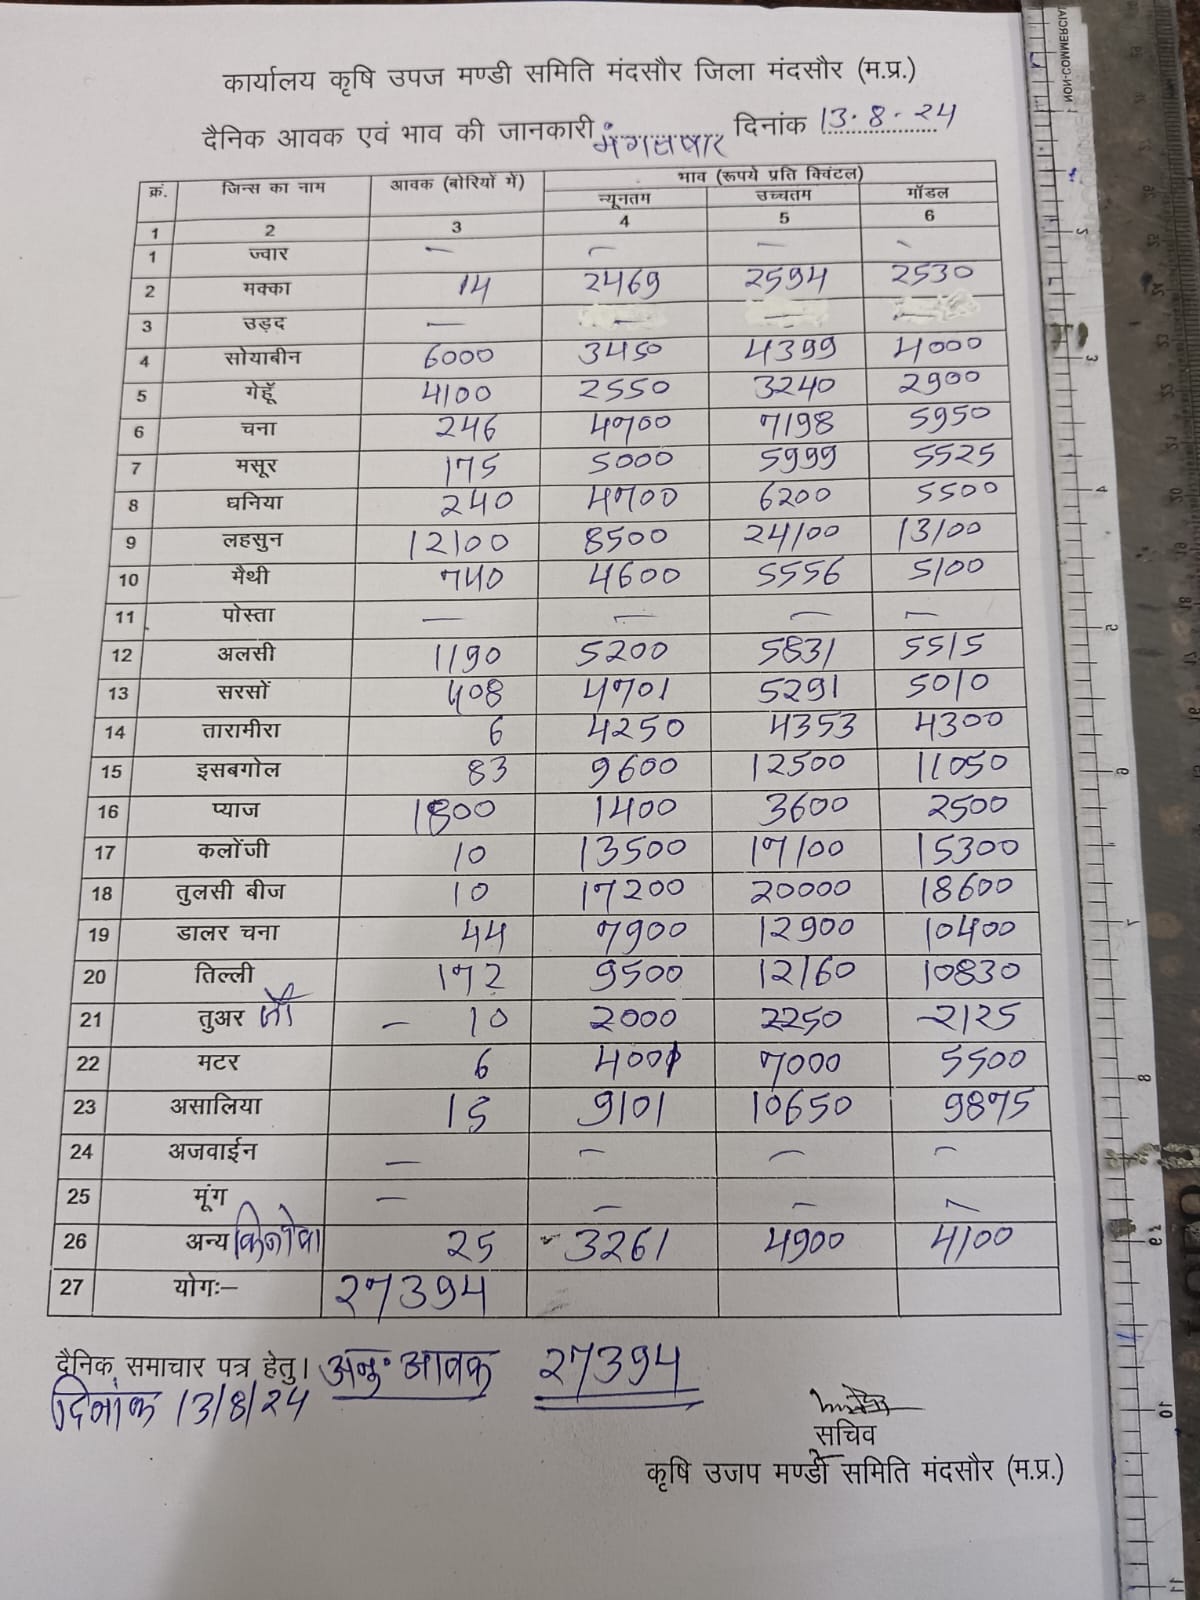 कार्यालय कृषि उपज मण्डी समिति मंदसौर जिला मंदसौर (म.प्र.)
दैनिक आवक एवं भाव की जानकारी मंगलवार दिनांक 13.8.24
क्रं. जिन्स का नाम आवक (बोरियों में) भाव (रूपये प्रति क्विंटल)
न्यूनतम उच्चतम मॉडल
1 2 3 4 5 6
1 ज्वार — — — —
2 मक्का 14 2469 2594 2530
3 उड़द — — — —
4 सोयाबीन 6000 3450 4399 4000
5 गेहूँ 4100 2550 3240 2900
6 चना 246 4700 7198 5950
7 मसूर 175 5000 5999 5525
8 धनिया 240 4700 6200 5500
9 लहसुन 12100 8500 24100 13100
10 मैथी 740 4600 5556 5100
11 पोस्ता — — — —
12 अलसी 1190 5200 5831 5515
13 सरसों 408 4701 5291 5010
14 तारामीरा 6 4250 4353 4300
15 इसबगोल 83 9600 12500 11050
16 प्याज 1800 1400 3600 2500
17 कलोंजी 10 13500 17100 15300
18 तुलसी बीज 10 17200 20000 18600
19 डालर चना 44 7900 12900 10400
20 तिल्ली 172 9500 12160 10830
21 तुअर जौ — 10 2000 2250 2125
22 मटर 6 4001 7000 5500
23 असालिया 15 9101 10650 9875
24 अजवाईन — — — —
25 मूंग — — — —
26 अन्य किनोवा 25 3261 4900 4100
27 योगः— 27394
दैनिक समाचार पत्र हेतु। अनु. आवक 27394
दिनांक 13/8/24
सचिव
कृषि उजप मण्डी समिति मंदसौर (म.प्र.)
NON-COMMERCIAL